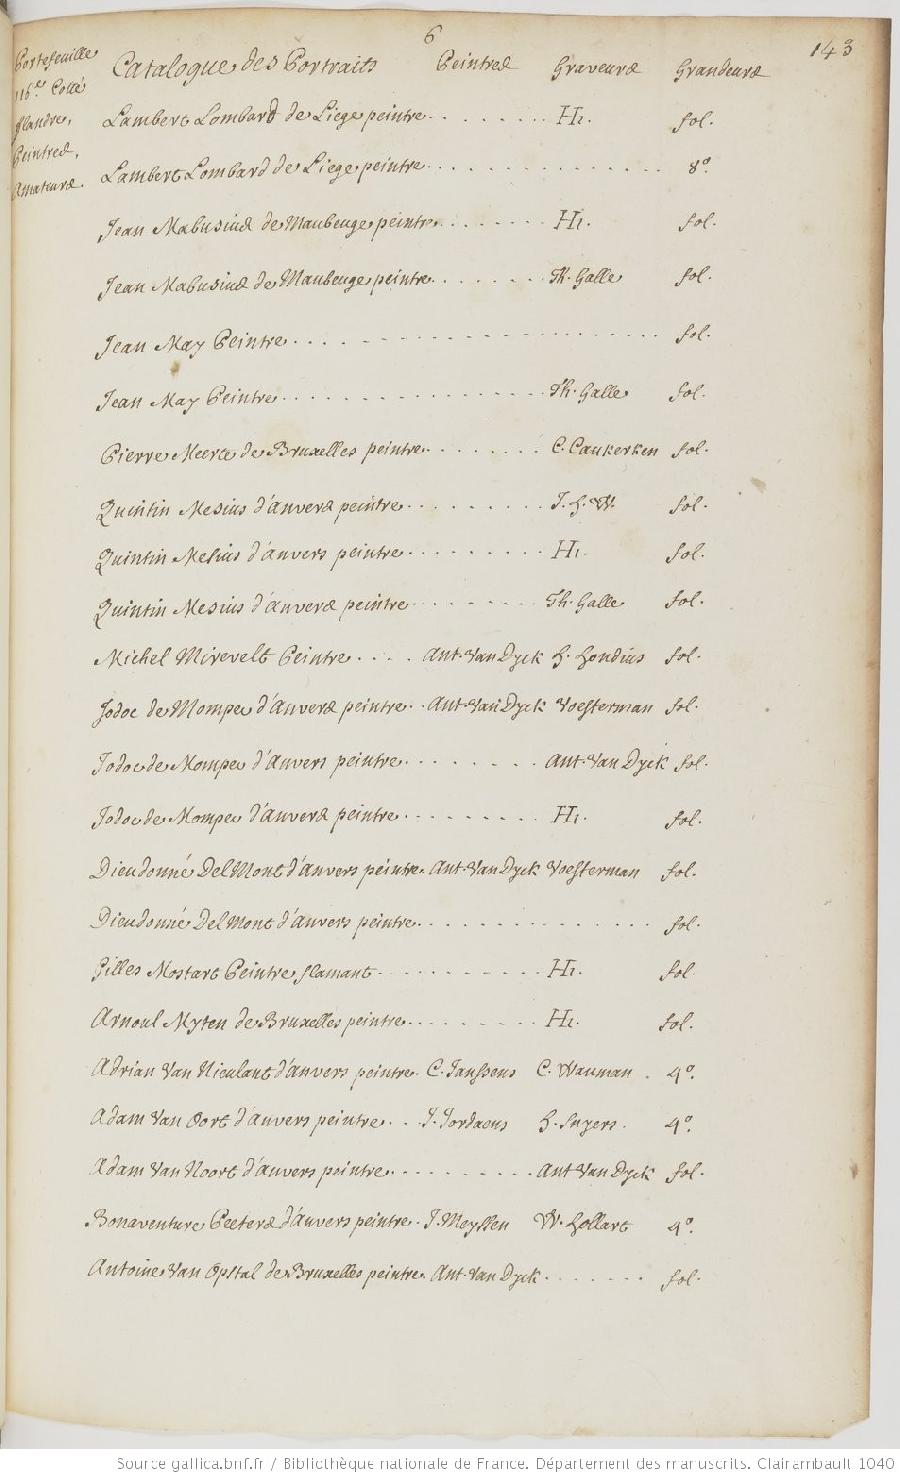 6
143
Portefeuille
116e. Cotté
flandre,
Peintres,
Amateurs.
Catalogue des Portraits Peintres Graveurs Grandeurs
Lambert Lombard de Liege peintre . . . . . . . . H1. fol.
Lambert Lombard de Liege peintre . . . . . . . . . . . . . . . 8º.
Jean Mabusius de Maubeuge peintre . . . . . . . . H1. fol.
Jean Mabusius de Maubeuge peintre . . . . . . . . Th. Galle fol.
Jean May Peintre . . . . . . . . . . . . . . . . . . . . fol.
Jean May Peintre . . . . . . . . . . . . . . . Th. Galle fol.
Pierre Meerte de Bruxelles peintre . . . . . . . C. Caukerken fol.
Quintin Mesius d'anvers peintre . . . . . . . . . J. h. W. fol.
Quintin Mesius d'anvers peintre . . . . . . . . . H1. fol.
Quintin Mesius d'anvers peintre . . . . . . . . . Th. Galle fol.
Michel Mirevelt Peintre . . . . Ant. Van Dyck h. hondius fol.
Jodoc de Mompeu d'anvers peintre . . Ant. Van Dyck Voesterman fol.
Jodoc de Mompeu d'Anvers peintre . . . . . . . . Ant. Van Dyck fol.
Jodoc de Mompeu d'anvers peintre . . . . . . . . . H1. fol.
Dieudonné Del Mont d'Anvers peintre. Ant. Van Dyck Voesterman fol.
Dieudonné Del Mont d'Anvers peintre . . . . . . . . . . . . . . fol.
Gilles Mostart Peintre flamant . . . . . . . . . . H1. fol
Arnoul Myten de Bruxelles peintre . . . . . . . . . H1. fol.
Adrian Van Nieulant d'anvers peintre . C. Janssens C. Wauman . 4º.
Adam Van Oort d'Anvers peintre . . . J. Jordaens h. Snyers . 4º.
Adam Van Noort d'anvers peintre . . . . . . . . . . Ant Van Dyck fol.
Bonaventure Peeters d'Anvers peintre . J. Meyssen W. hollart 4º.
Antoine Van Opstal de Bruxelles peintre. Ant. Van Dyck . . . . . . . fol.
Source gallica.bnf.fr / Bibliothèque nationale de France. Département des manuscrits. Clairambault 1040